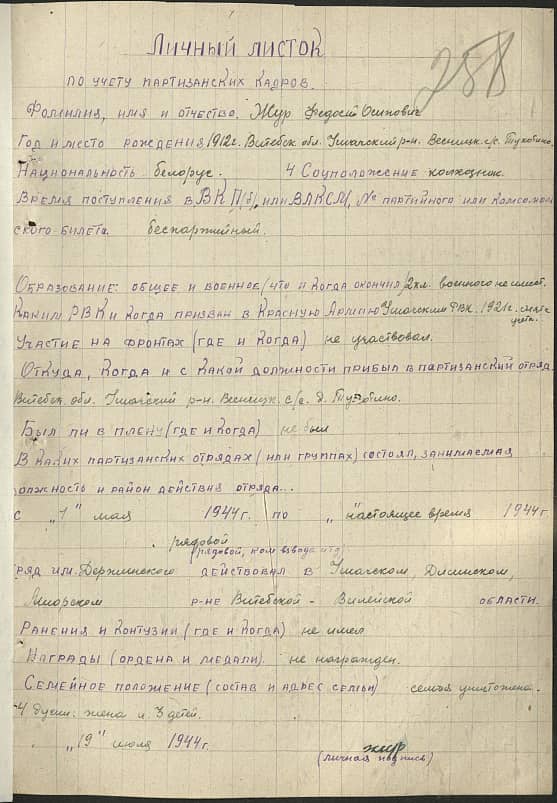 258
Личный листок
по учету партизанских кадров.
Фамилия, имя и отчество. Жур Федосий Осипович
Год и место рождения 1912г. Витебск обл. Ушачский р-н. Весницк. с/с.
Национальность белорус. 4 Соцположение колхозник.
Время поступления в ВКП(б), или ВЛКСМ, № партийного или комсомол
ского билета беспартийный.
Образование: общее и военное (что и когда окончил) 2 кл. военного не имеет.
Каким РВК и когда призван в Красную Армию Ушачским РВК. 1921г.
учета.
Участие на фронтах (где и когда) не участвовал.
Откуда, когда и с какой должности прибыл в партизанский отряд
Витебск. обл. Ушачский р-н. Весницк. с/с. д.
Был ли в плену (где и когда) не был
В каких партизанских отрядах (или группах) состоял, занимаемая
должность и район действия отряда...
с „1" мая 1944г. по „ " настоящее время 1944г.
рядовой
(рядовой, ком. взвода итд
ряд им. Держинского действовал в Ушачском, Дисненском,
р-не Витебской - Вилейской области.
Ранения и контузии (где и когда) не имел
Награды (ордена и медали). не награжден.
Семейное положение (состав и адрес семьи) семья уничтожена.
4 души: жена и 3 детей.
„19" июля 1944г. Жур
(личная подпись)